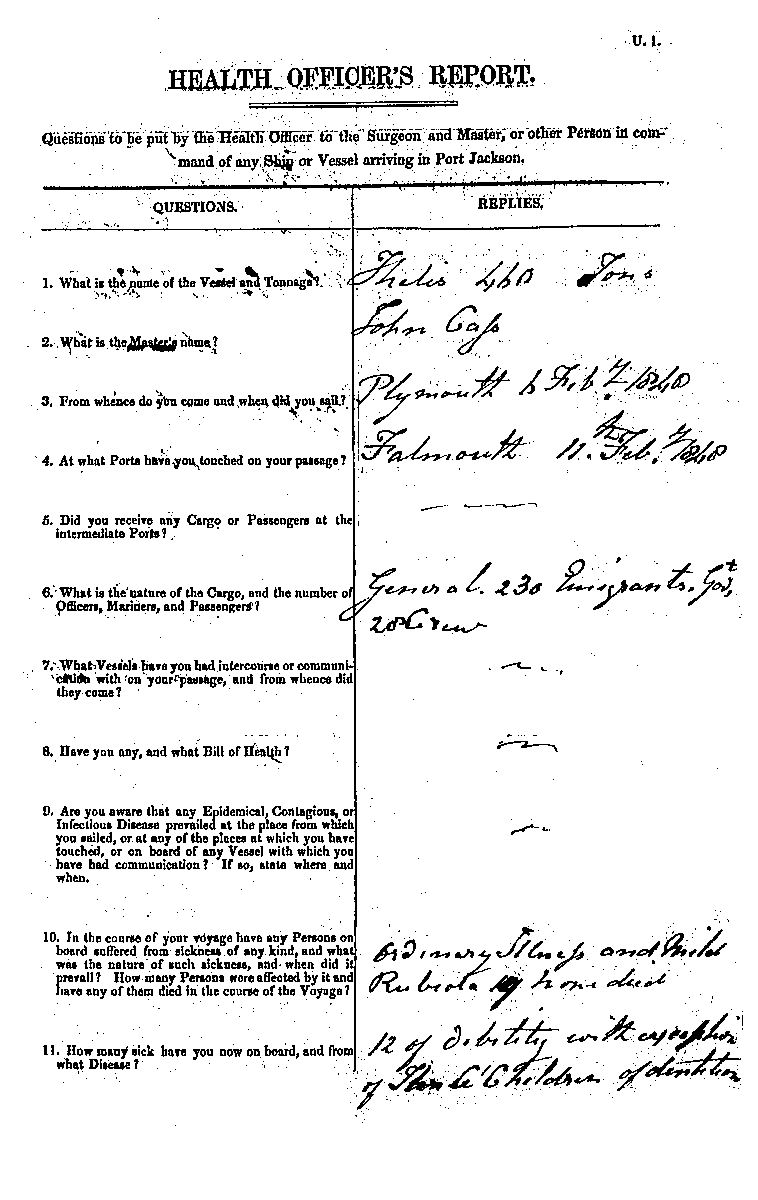 U. 1.
HEALTH OFFICER'S REPORT.
Questions to be put by the Health Officer to the Surgeon and Master, or other Person in com-
mand of any Ship or Vessel arriving in Port Jackson.
QUESTIONS.
REPLIES.
1. What is the name of the Vessel and Tonnage?
Thetis 460 Tons
2. What is the Master's name?
John Cass
3. From whence do you come and when did you sail?
Plymouth 6 Feby. 1848
4. At what Ports have you touched on your passage?
Falmouth 11th Feby. 1848
5. Did you receive any Cargo or Passengers at the
intermediate Ports?
6. What is the nature of the Cargo, and the number of
Officers, Mariners, and Passengers?
General. 230 Emigrants. Govt,
28 Crew
7. What Vessels have you had intercourse or communi-
cation with on your passage, and from whence did
they come?
8. Have you any, and what Bill of Health?
9. Are you aware that any Epidemical, Contagious, or
Infectious Disease prevailed at the place from which
you sailed, or at any of the places at which you have
touched, or on board of any Vessel with which you
have had communication? If so, state where and
when.
10. In the course of your voyage have any Persons on
board suffered from sickness of any kind, and what
was the nature of such sickness, and when did it
prevail? How many Persons were affected by it and
have any of them died in the course of the Voyage?
Ordinary Illness and Mild
Rubeola none died
11. How many sick have you now on board, and from
what Disease?
12 of debility with exception
of Children of dentition